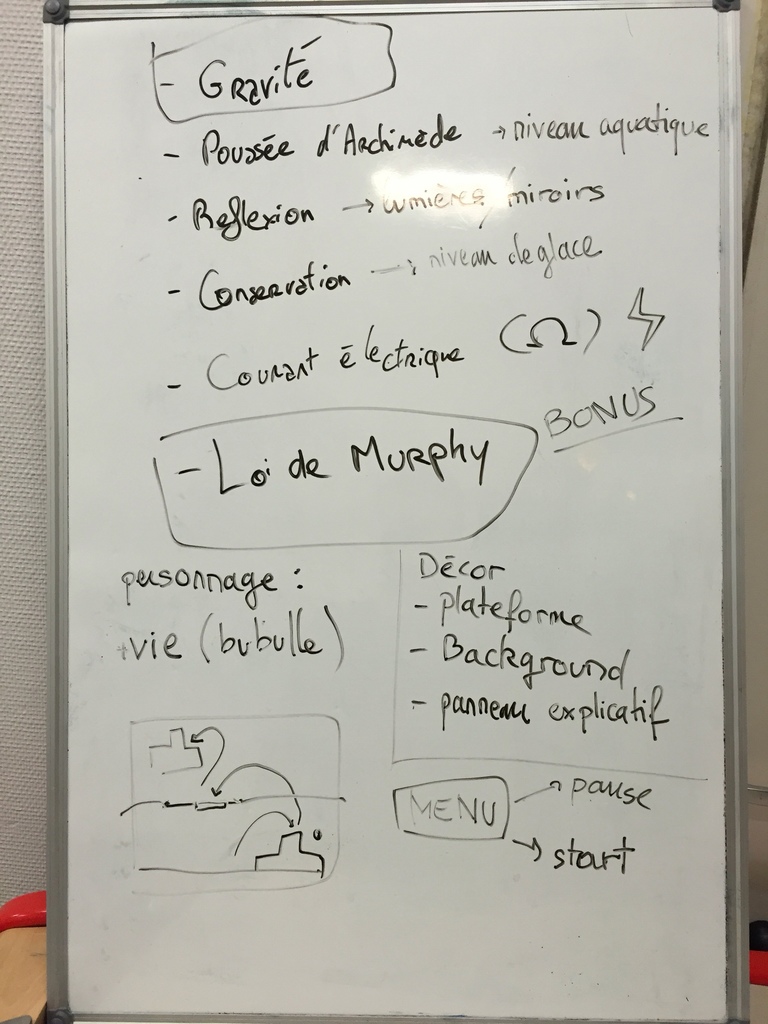 - Gravité
- Poussée d'Archimède → niveau aquatique
- Reflexion → lumières/miroirs
- Conservation → niveau de glace
- Courant électrique (Ω)
BONUS
- Loi de Murphy
personnage :
vie (bubulle)
Décor
- plateforme
- Background
- panneau explicatif
MENU
→ pause
→ start